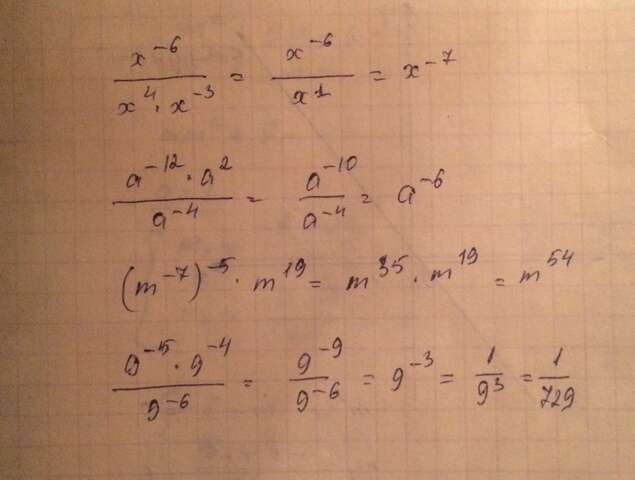 x⁻⁶/(x⁴ · x⁻³) = x⁻⁶/x¹ = x⁻⁷
(a⁻¹² · a²)/a⁻⁴ = a⁻¹⁰/a⁻⁴ = a⁻⁶
(m⁻⁷)⁻⁵ · m¹⁹ = m³⁵ · m¹⁹ = m⁵⁴
(9⁻⁵ · 9⁻⁴)/9⁻⁶ = 9⁻⁹/9⁻⁶ = 9⁻³ = 1/9³ = 1/729